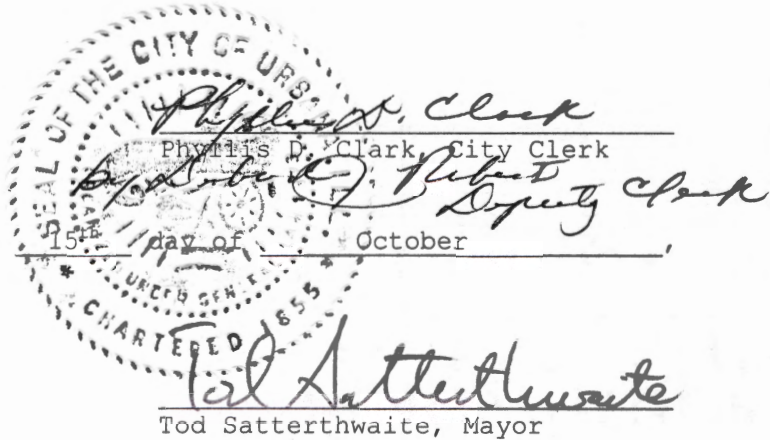 SEAL OF THE CITY OF URBA
CHARTERED 1855
Phyllis D. Clark
Phyllis D. Clark, City Clerk
by Debra J. Roberts
Deputy Clerk
15th day of October ,
Tod Satterthwaite
Tod Satterthwaite, Mayor